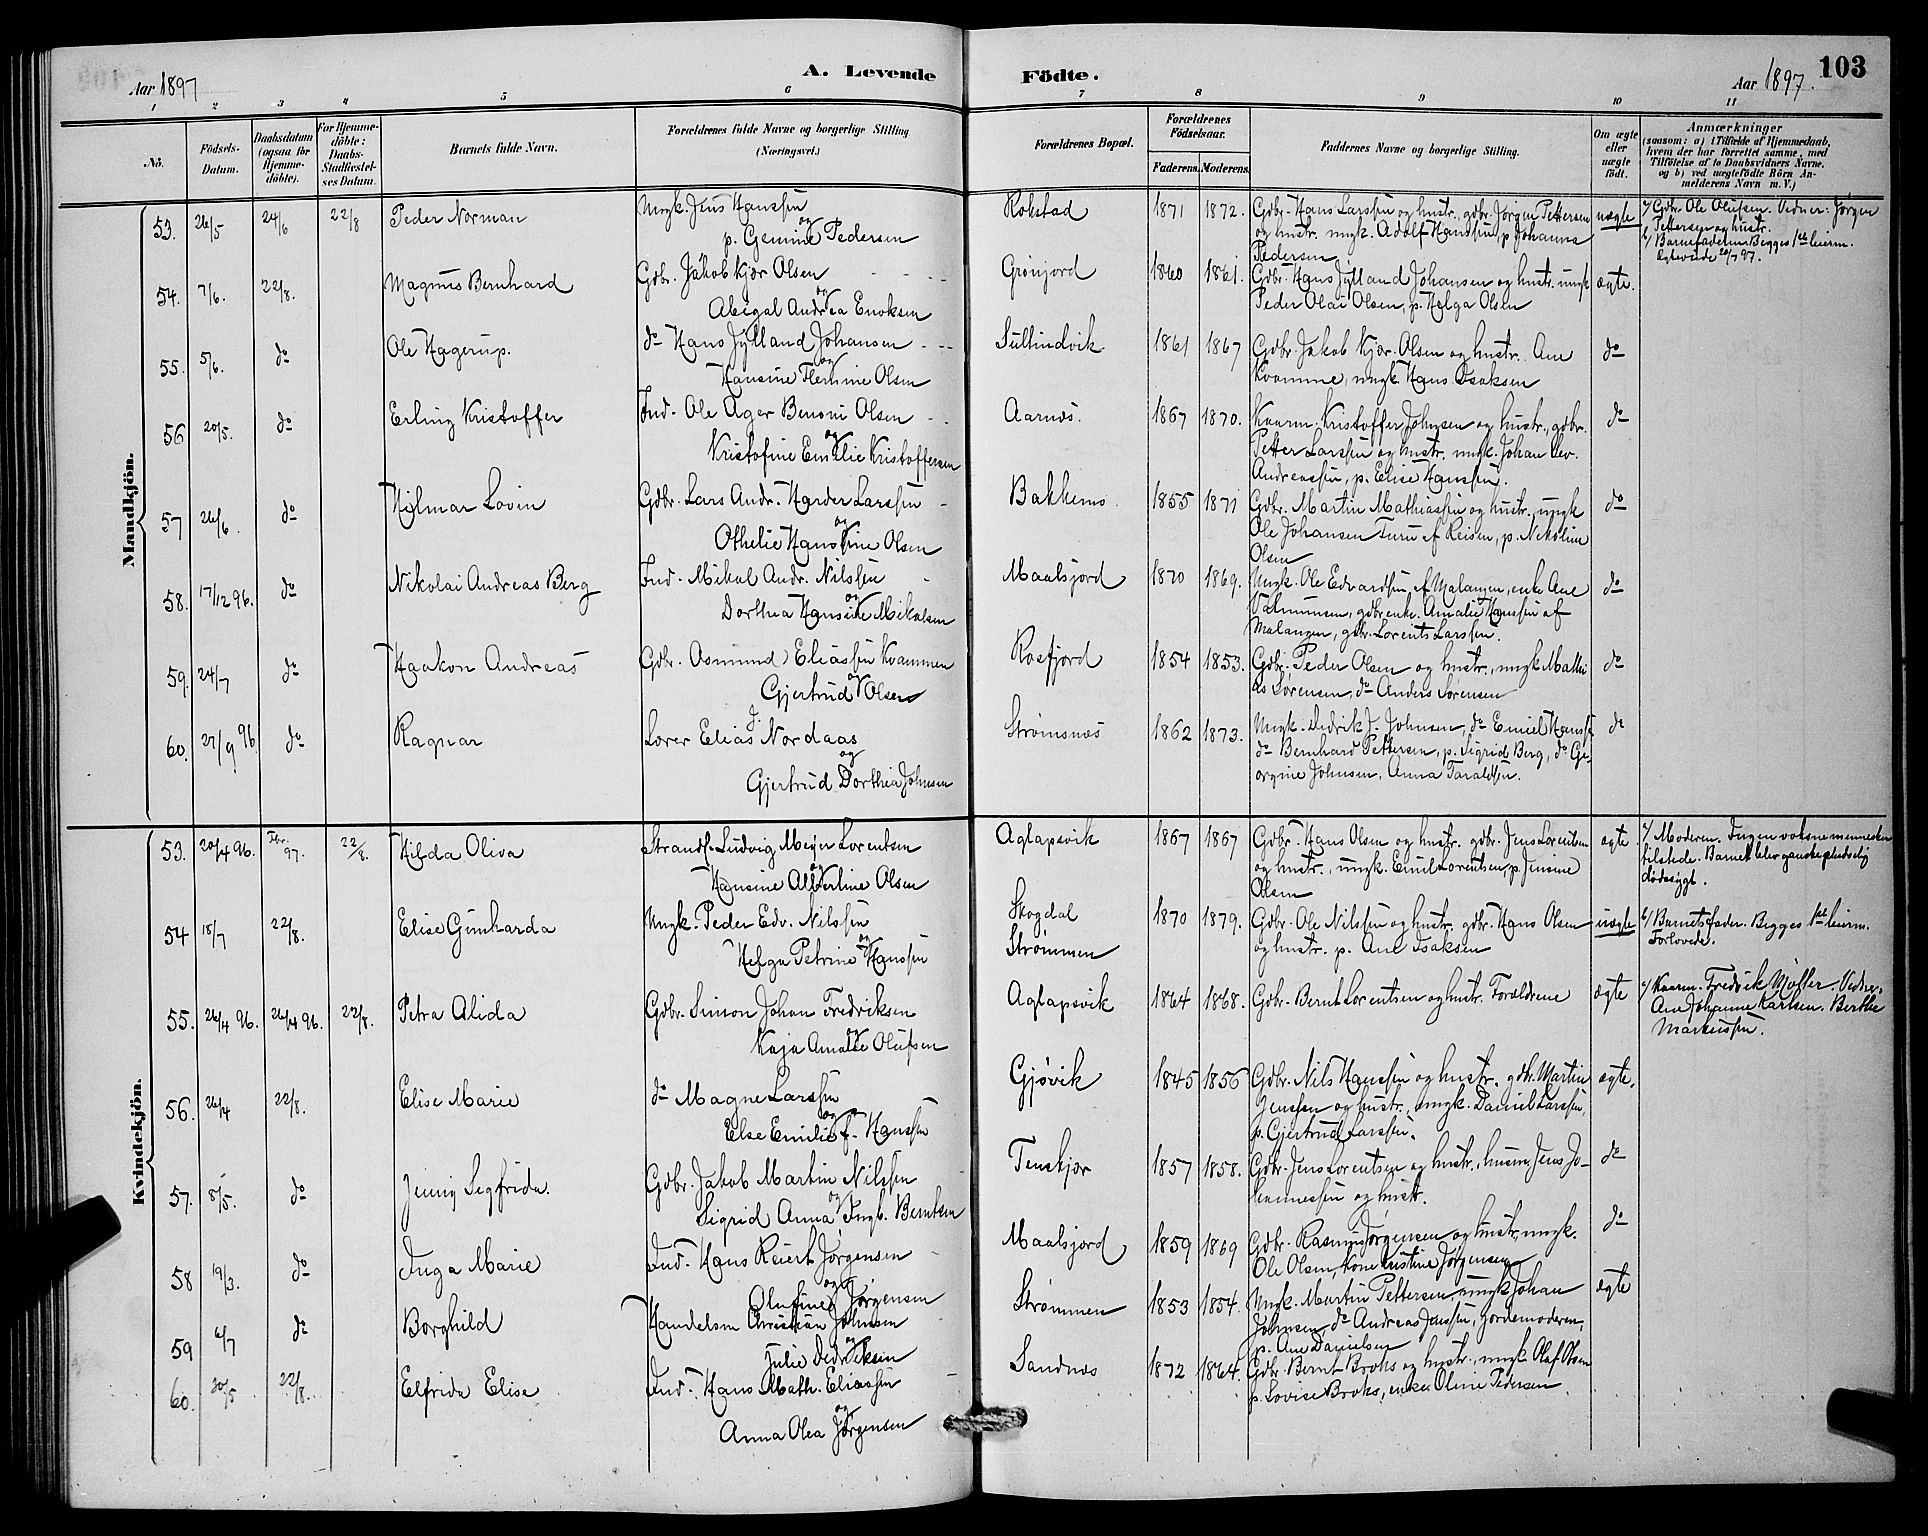 Aar 1897
A. Levende Födte.
Aar 1897.
103
1 2 3 4 5 6 7 8 9 10 11
No.
Födsels-Datum.
Daabsdatum (ogsaa for Hjemme-döbte).
For Hjemme-döbte: Daabs-Stadfæstel-ses Datum.
Barnets fulde Navn.
Forældrenes fulde Navne og borgerlige Stilling
(Næringsvei.)
Forældrenes Bopæl.
Forældrenes Födselsaar.
Faderens. Moderens.
Faddernes Navne og borgerlige Stilling.
Om ægte eller uægte født.
Anmærkninger
(saasom: a) i Tilfælde af Hjemmedaab,
hvem der har forrettet samme, med
Tilföielse af to Daabsvidners Navne.
og b) ved uægtefödte Börn An-
melderens Navn m. V.)
Mandkjön.
53. 26/5 24/6 22/8 Peder Norman Ungk. Jens Hanssen
og
p. Gemine Pedersen
Rokstad 1871 1872. Gdbr. Hans Larssen og hustr., gdbr. Jørgen Pettersen
og hustr. ungk. Adolf Hanssen, p. Johanna
Pedersen
uægte
a/ Gdbr. Ole Olufsen. Vidner: Jørgen
Pettersen og hustr.
b/ Barnefaderen. Begges 1ste leierm.
Ægteviede 20/7 97.
54. 7/6. 22/8. Magnus Bernhard Gdbr. Jakob Kjær Olsen
og
Abigal Andrea Enoksen
Grønjord 1860 1861. Gdbr. Hans Jylland Johansen og hustr. ungk
Peder Olai Olsen, p. Helga Olsen
ægte.
55. 5/6. do Ole Hagerup. do Hans Jylland Johansen
og
Hansine Flemine Olsen
Sultindvik 1861 1867 Gdbr. Jakob Kjær Olsen og hustr. Ane
Kvamme, ungk. Hans Isaksen
do
56 20/5. do Erling Kristoffer Ind. Ole Ager Benoni Olsen
og
Kristofine Emelie Kristoffersen
Aarnæs. 1867 1870. Kaarm. Kristoffer Johnsen og hustr., gdbr.
Petter Larssen og hustr. ungk. Johan Lev.
Andreassen, p. Elise Hanssen.
do
57 26/6. do Hilmar Lovin Gdbr. Lars Andr. Harder Larssen
og
Othelie Hansine Olsen
Bakkemo. 1855 1871 Gdbr. Martin Mathiassen og hustr. ungk
Ole Johansen Turu af Reisen, p. Nikoline
Olsen
do
58. 17/12 96. do Nikolai Andreas Berg Ind. Mikal Andr. Nilssen
og
Dorthea Hansine Mikalsen
Maalsjord 1870 1869. Ungk. Ole Edvardsen af Malangen, enke Ane
Salmunsen, gdbr.enke Amalie Hanssen af
Malangen, gdbr. Lorents Larssen.
do
59. 24/7 do Haakon Andreas Gdbr. Osmund Eliassen Kvammen
og
Gjertrud Olsen
Rosfjord 1854 1853. Gdbr. Peder Olsen og hustr., ungk. Mathi
as Sørensen, do Anders Sørensen
do
60. 27/9 96 do Ragnar Lærer Elias J. Nordaas
og
Gjertrud Dorthea Johnsen
Strømsnæs 1862 1873. Ungk. Dedrik J. Johnsen, do Emiel Hanss.
do Bernhard Pettersen, p. Sigrid Berg, do Ge-
orgine Johnsen, Anna Taraldsen.
do
Kvindekjön.
53. 20/4 96. Febr. 97. 22/8. Hilda Oliva Strands. Ludvig Meyer Lorentsen
og
Hansine Albertine Olsen
Aglapsvik 1867 1867 Gdbr. Hans Olsen og hustr. gdbr. Jens Lorentsen
og hustr., ungk. Emil Lorentsen, p. Jensine
Olsen
ægte
a/ Moderen. Ingen voksne mennesker
tilstede. Barnet blev ganske pludselig
dødssygt.
54 18/7 22/8. Elise Gunharda Ungk. Peder Edv. Nilssen
og
Helga Petrine Hanssen
Skogdal
Strømmen
1870 1879. Gdbr. Ole Nilssen og hustr. gdbr. Hans Olsen
og hustr. p. Ane Isaksen
uægte
b/ Barnets fader. Begges 1ste leierm.
Forlovede.
55. 26/4 96. 26/4 96. 22/8. Petra Alida Gdbr. Simon Johan Fredriksen
og
Kaja Amalie Olufsen
Aglapsvik 1864 1868. Gdbr. Bernt Lorentsen og hustr. Forældrene
ægte
a/ Kaarm. Fredrik Møller. Vidner:
Ane Johanne Karlsen. Berthe
Markussen.
56. 26/4 22/8. Elise Marie do Magne Larssen
og
Else Emilie f. Hanssen
Gjøvik 1845 1856 Gdbr. Nils Hanssen og hustr. gdbr. Martin
Jenssen og hustr., ungk. Daniel Larssen,
p. Gjertrud Larssen.
ægte.
57. 8/5. do Jenny Segfrida. Gdbr. Jakob Martin Nilssen
og
Sigrid Anna Ingb. Berntsen
Tenskjær 1857 1858. Gdbr. Jens Lorentsen og hustr., husm. Jens Jo-
hannessen og hustr.
do
58 19/3. do Inga Marie Ind. Hans Reiert Jørgensen
og
Olufine Jørgensen
Maalsjord 1859 1869 Gdbr. Rasmus Jørgensen og hustr., ungk.
Ole Olsen, kone Kristine Jørgensen
do
59 6/7 do Borghild Handelsm Christian Johnsen
og
Julie Dedriksen
Strømmen 1853 1854. Ungk. Martin Pettersen, ungk Johan
Johnsen, do Andreas Jenssen, Jordemoderen,
p. Ane Danielsen
ægte
60. 20/5 22/8. Elfrida Elise Ind. Hans Math. Eliassen
og
Anna Olea Jørgensen
Sandnæs 1872 1864. Gdbr. Bernt Broks og hustr., ungk Olaf Olsen
p. Lovise Broks, enke Oline Pedersen.